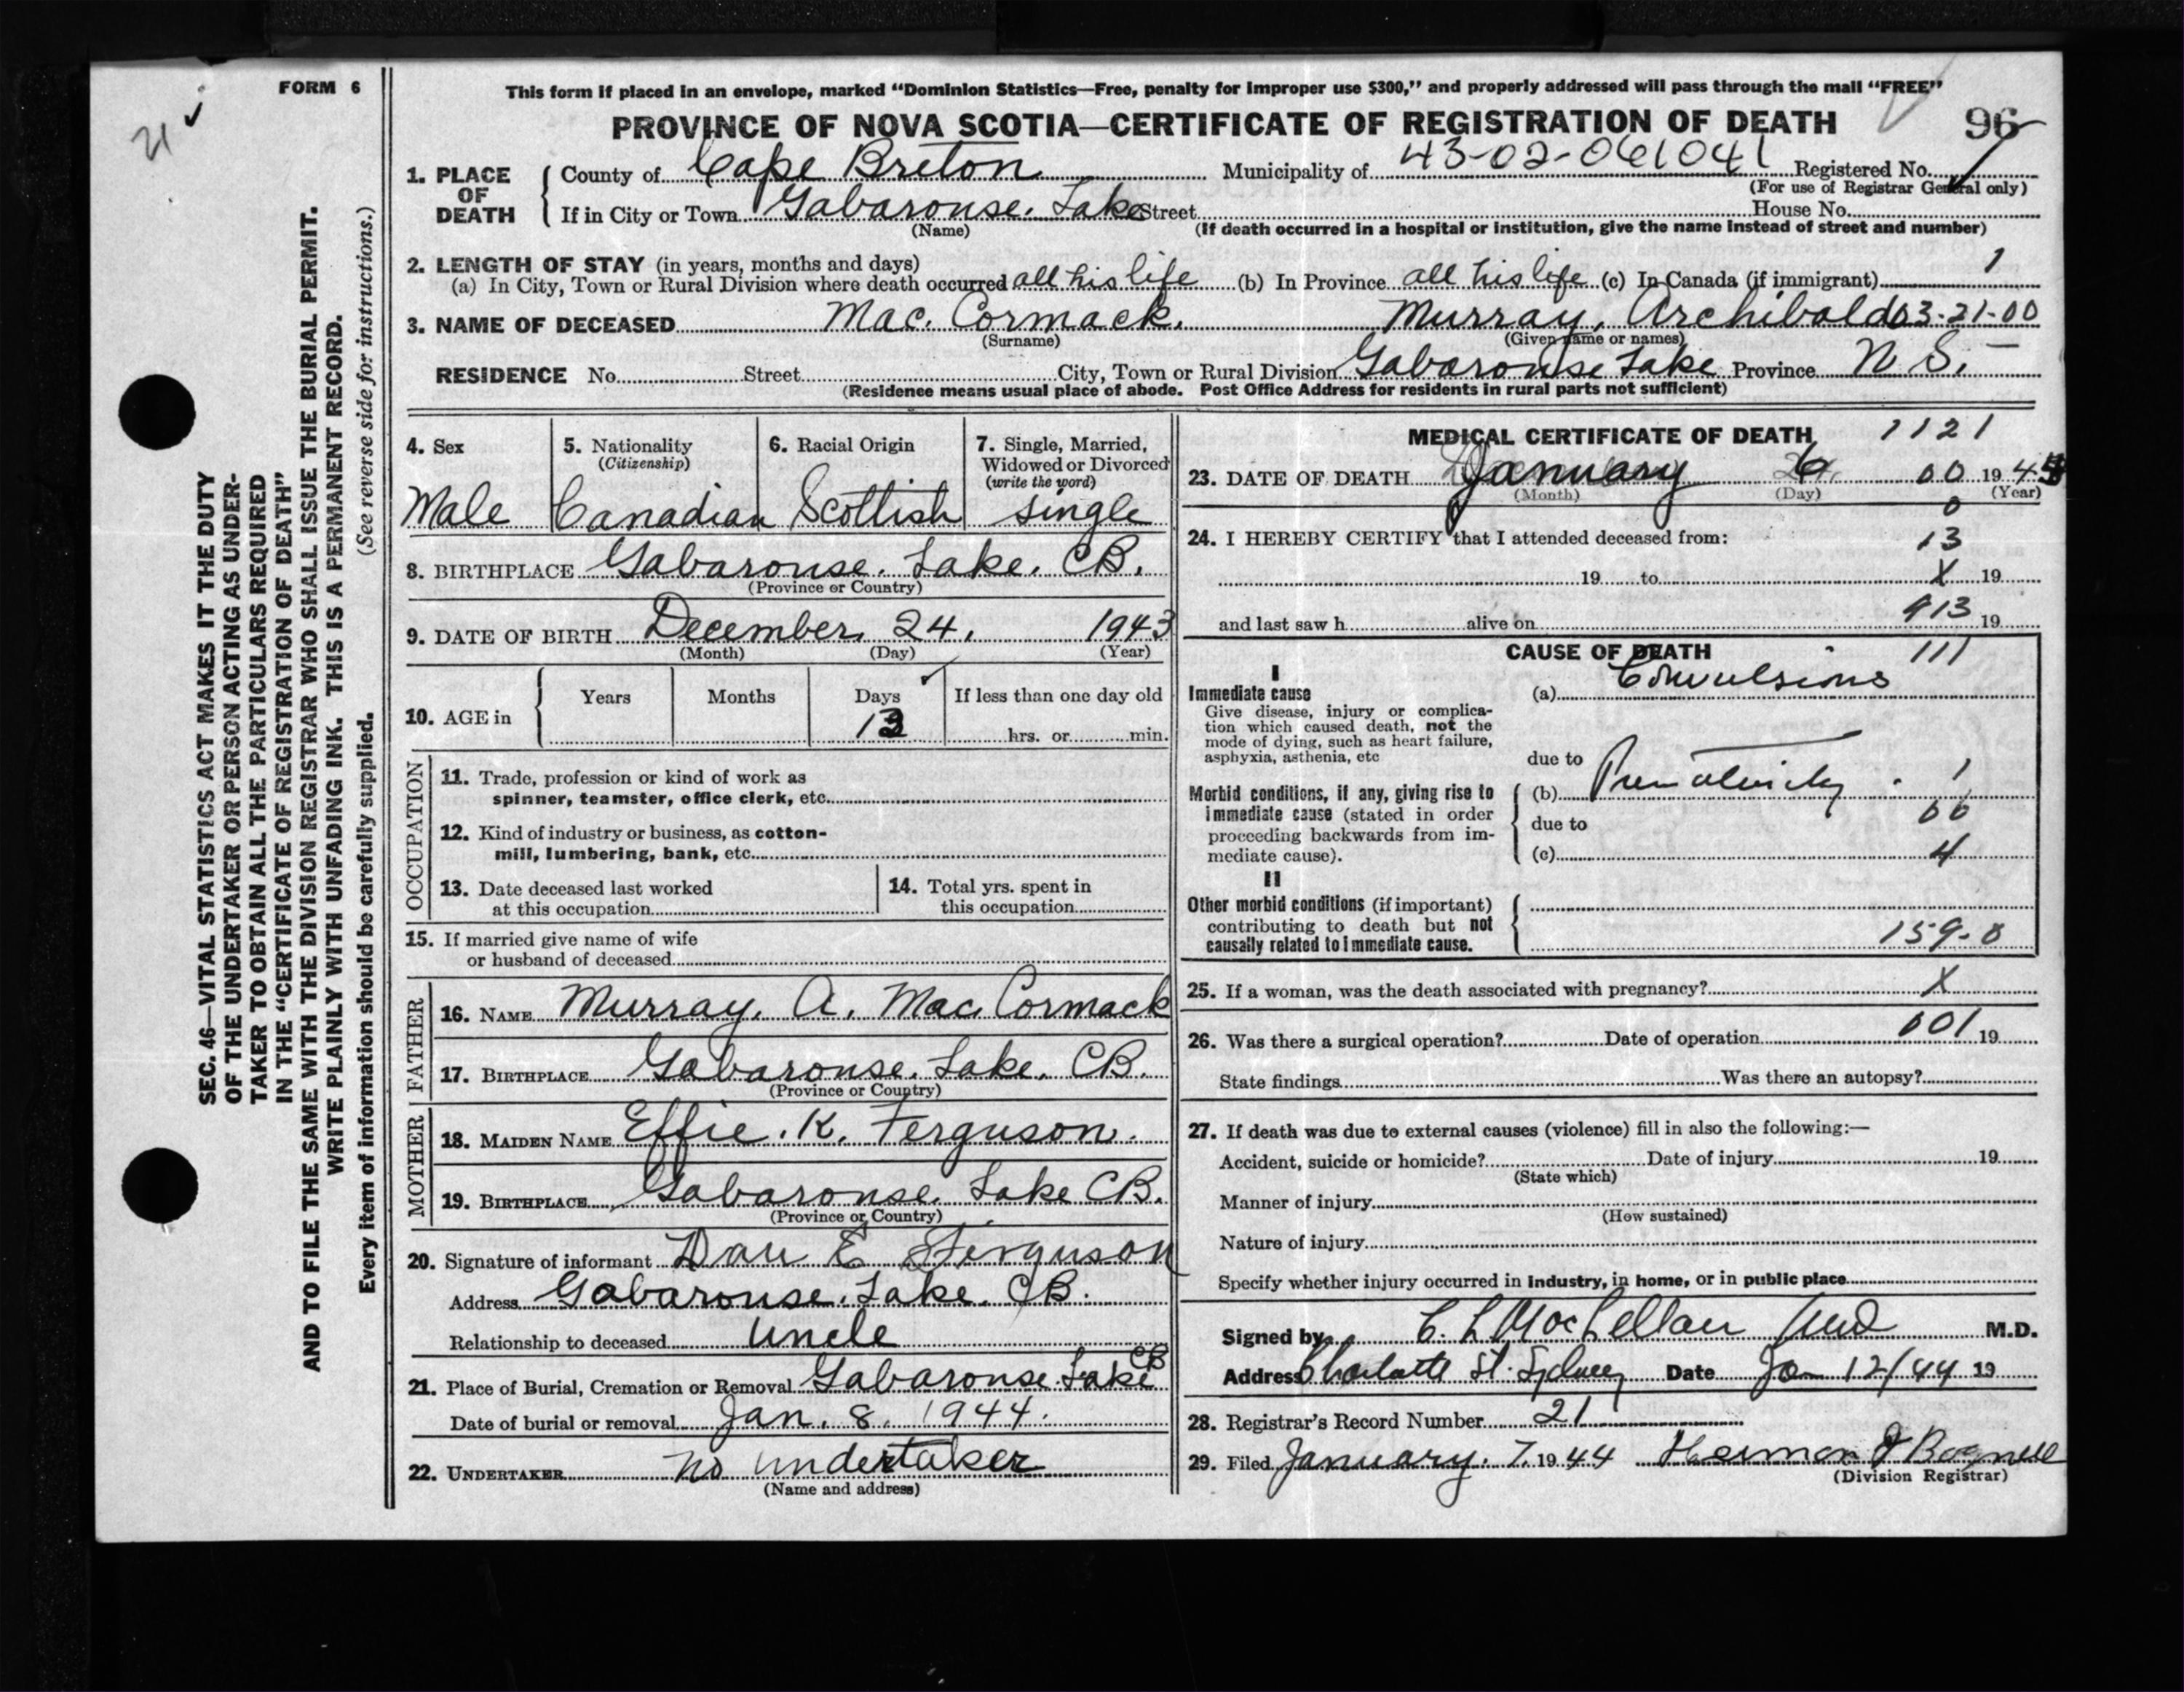 FORM 6
21 ✓
This form if placed in an envelope, marked "Dominion Statistics—Free, penalty for improper use $300," and properly addressed will pass through the mail "FREE"
PROVINCE OF NOVA SCOTIA—CERTIFICATE OF REGISTRATION OF DEATH
96
1. PLACE OF DEATH
County of Cape Breton Municipality of 43-02-061041 Registered No.
(For use of Registrar General only)
If in City or Town Gabarouse. Lake Street House No.
(Name) (If death occurred in a hospital or institution, give the name instead of street and number)
2. LENGTH OF STAY (in years, months and days) 1
(a) In City, Town or Rural Division where death occurred all his life (b) In Province all his life (c) In Canada (if immigrant)
3. NAME OF DECEASED Mac. Cormack. Murray, Archibald 03-21-00
(Surname) (Given name or names)
RESIDENCE No. Street City, Town or Rural Division Gabarouse Lake Province N S.
(Residence means usual place of abode. Post Office Address for residents in rural parts not sufficient)
4. Sex
Male
5. Nationality
(Citizenship)
Canadian
6. Racial Origin
Scottish
7. Single, Married,
Widowed or Divorced
(write the word)
single
8. BIRTHPLACE Gabarouse. Lake. CB.
(Province or Country)
9. DATE OF BIRTH December, 24, 1943
(Month) (Day) (Year)
10. AGE in
Years Months Days If less than one day old
13 hrs. or min.
OCCUPATION
11. Trade, profession or kind of work as
spinner, teamster, office clerk, etc.
12. Kind of industry or business, as cotton-
mill, lumbering, bank, etc.
13. Date deceased last worked
at this occupation
14. Total yrs. spent in
this occupation
15. If married give name of wife
or husband of deceased
FATHER
16. NAME Murray. A. Mac. Cormack
17. BIRTHPLACE Gabarouse. Lake. CB.
(Province or Country)
MOTHER
18. MAIDEN NAME Effie. K. Ferguson.
19. BIRTHPLACE Gabarouse. Lake CB.
(Province or Country)
20. Signature of informant Dan E Ferguson
Address Gabarouse. Lake. CB.
Relationship to deceased Uncle
21. Place of Burial, Cremation or Removal Gabarouse. Lake CB
Date of burial or removal Jan. 8. 1944.
22. UNDERTAKER no undertaker
(Name and address)
MEDICAL CERTIFICATE OF DEATH 1121
23. DATE OF DEATH January 6 00 194
(Month) (Day) (Year)
0
24. I HEREBY CERTIFY that I attended deceased from: 13
19 to X 19
and last saw h alive on 913 19
CAUSE OF DEATH 111
I
Immediate cause (a) Convulsions
Give disease, injury or complica-
tion which caused death, not the
mode of dying, such as heart failure,
asphyxia, asthenia, etc
due to
Morbid conditions, if any, giving rise to
immediate cause (stated in order
proceeding backwards from im-
mediate cause).
(b) Prematurity. 1
due to 00
(c) 4
II
Other morbid conditions (if important)
contributing to death but not
causally related to immediate cause. 159-0
25. If a woman, was the death associated with pregnancy? X
26. Was there a surgical operation? Date of operation 001 19
State findings Was there an autopsy?
27. If death was due to external causes (violence) fill in also the following:—
Accident, suicide or homicide? Date of injury 19
(State which)
Manner of injury
(How sustained)
Nature of injury
Specify whether injury occurred in industry, in home, or in public place
Signed by C. L MacLellan M.D.
Address Charlotte St. Sydney Date Jan 12/44 19
28. Registrar's Record Number 21
29. Filed January. 7. 1944
(Division Registrar)
SEC. 46—VITAL STATISTICS ACT MAKES IT THE DUTY
OF THE UNDERTAKER OR PERSON ACTING AS UNDER-
TAKER TO OBTAIN ALL THE PARTICULARS REQUIRED
IN THE "CERTIFICATE OF REGISTRATION OF DEATH"
AND TO FILE THE SAME WITH THE DIVISION REGISTRAR WHO SHALL ISSUE THE BURIAL PERMIT.
WRITE PLAINLY WITH UNFADING INK. THIS IS A PERMANENT RECORD.
Every item of information should be carefully supplied. (See reverse side for instructions.)